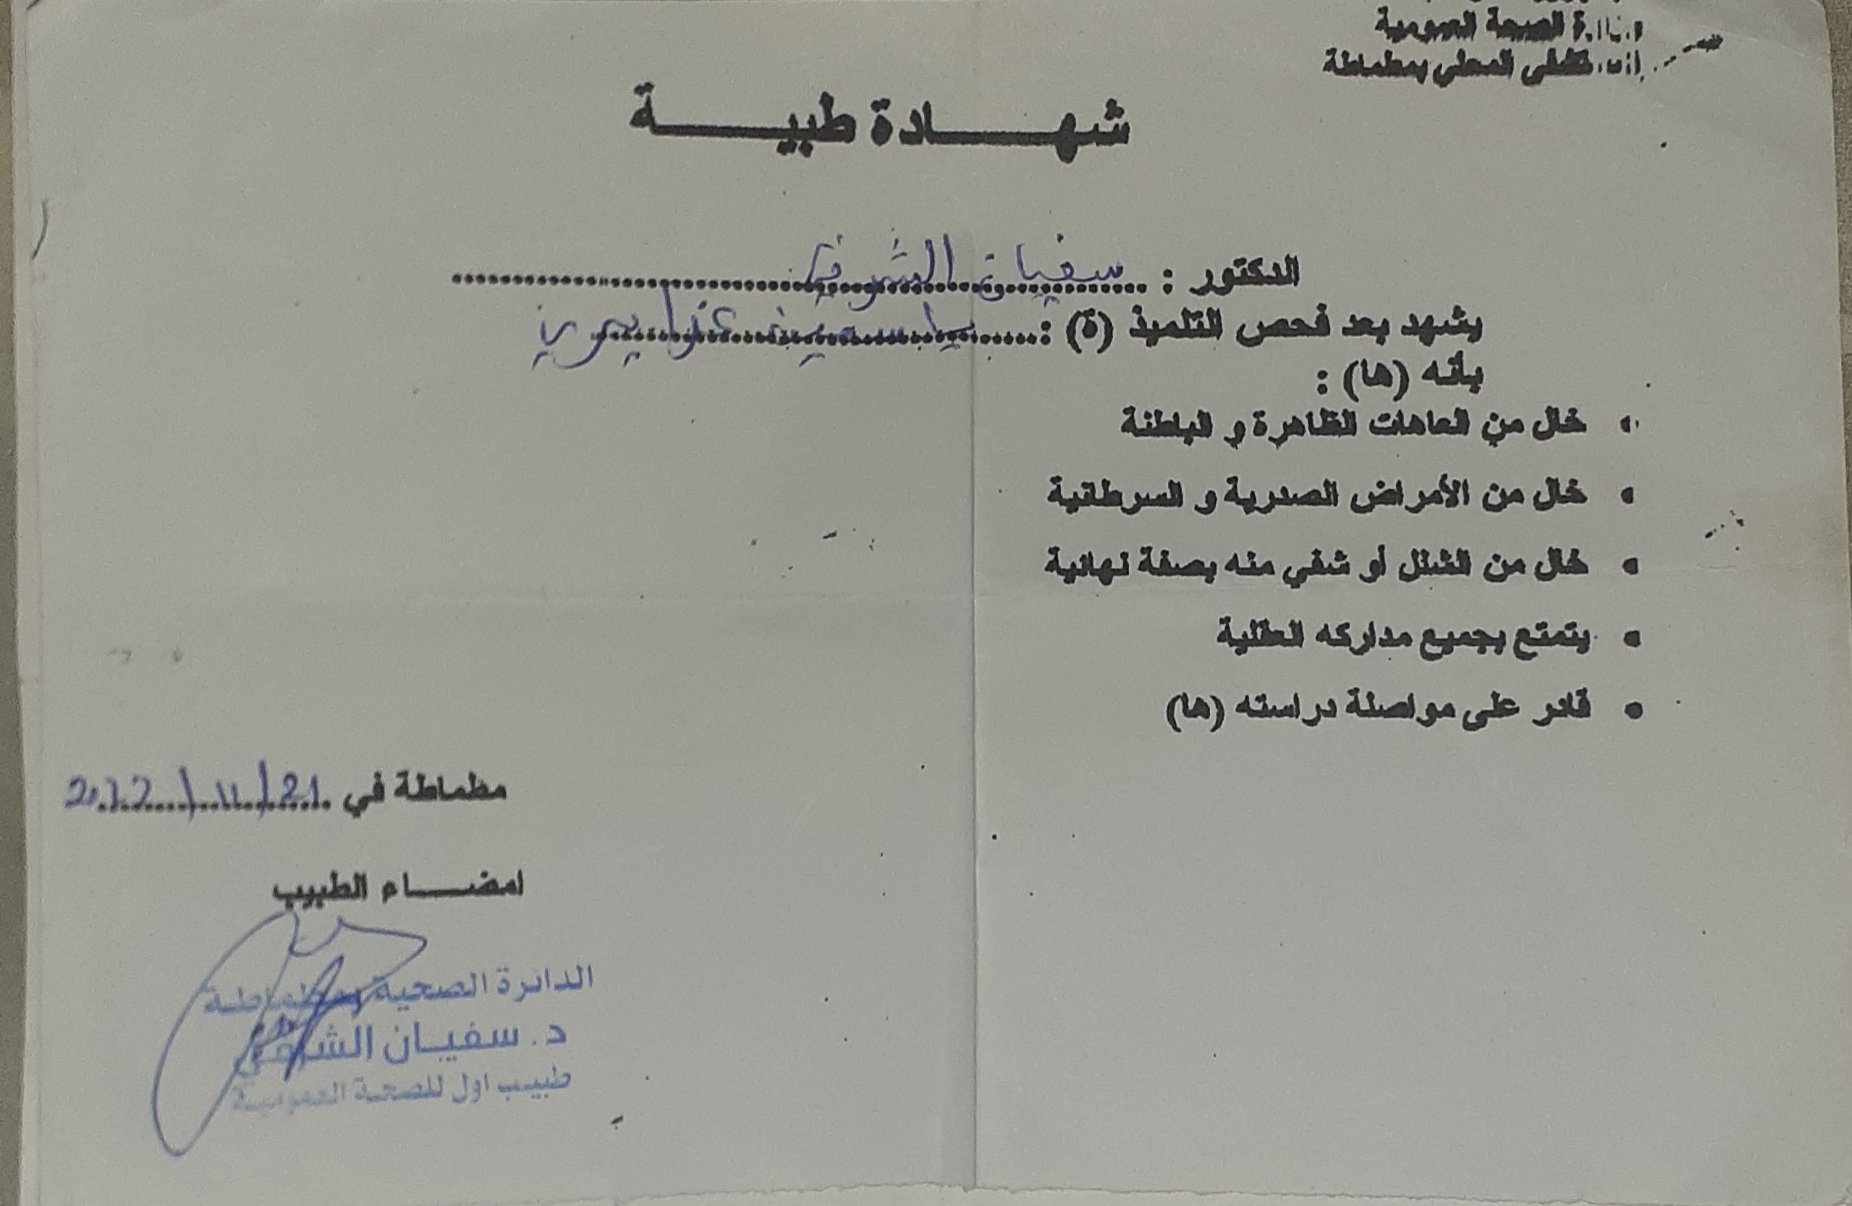 وزارة الصحة العمومية
المستشفى المحلي بمطماطة
شهادة طبية
الدكتور : سفيان الشرفي
يشهد بعد فحص التلميذ (ة) : ياسمين
بأنه (ها) :
• خال من العاهات الظاهرة و الباطنة
• خال من الأمراض الصدرية و السرطانية
• خال من الشلل أو شفي منه بصفة نهائية
• يتمتع بجميع مداركه العقلية
• قادر على مواصلة دراسته (ها)
مطماطة في 21/11/2022
امضاء الطبيب
الدائرة الصحية بمطماطة
د. سفيان الشرفي
طبيب اول للصحة العمومية